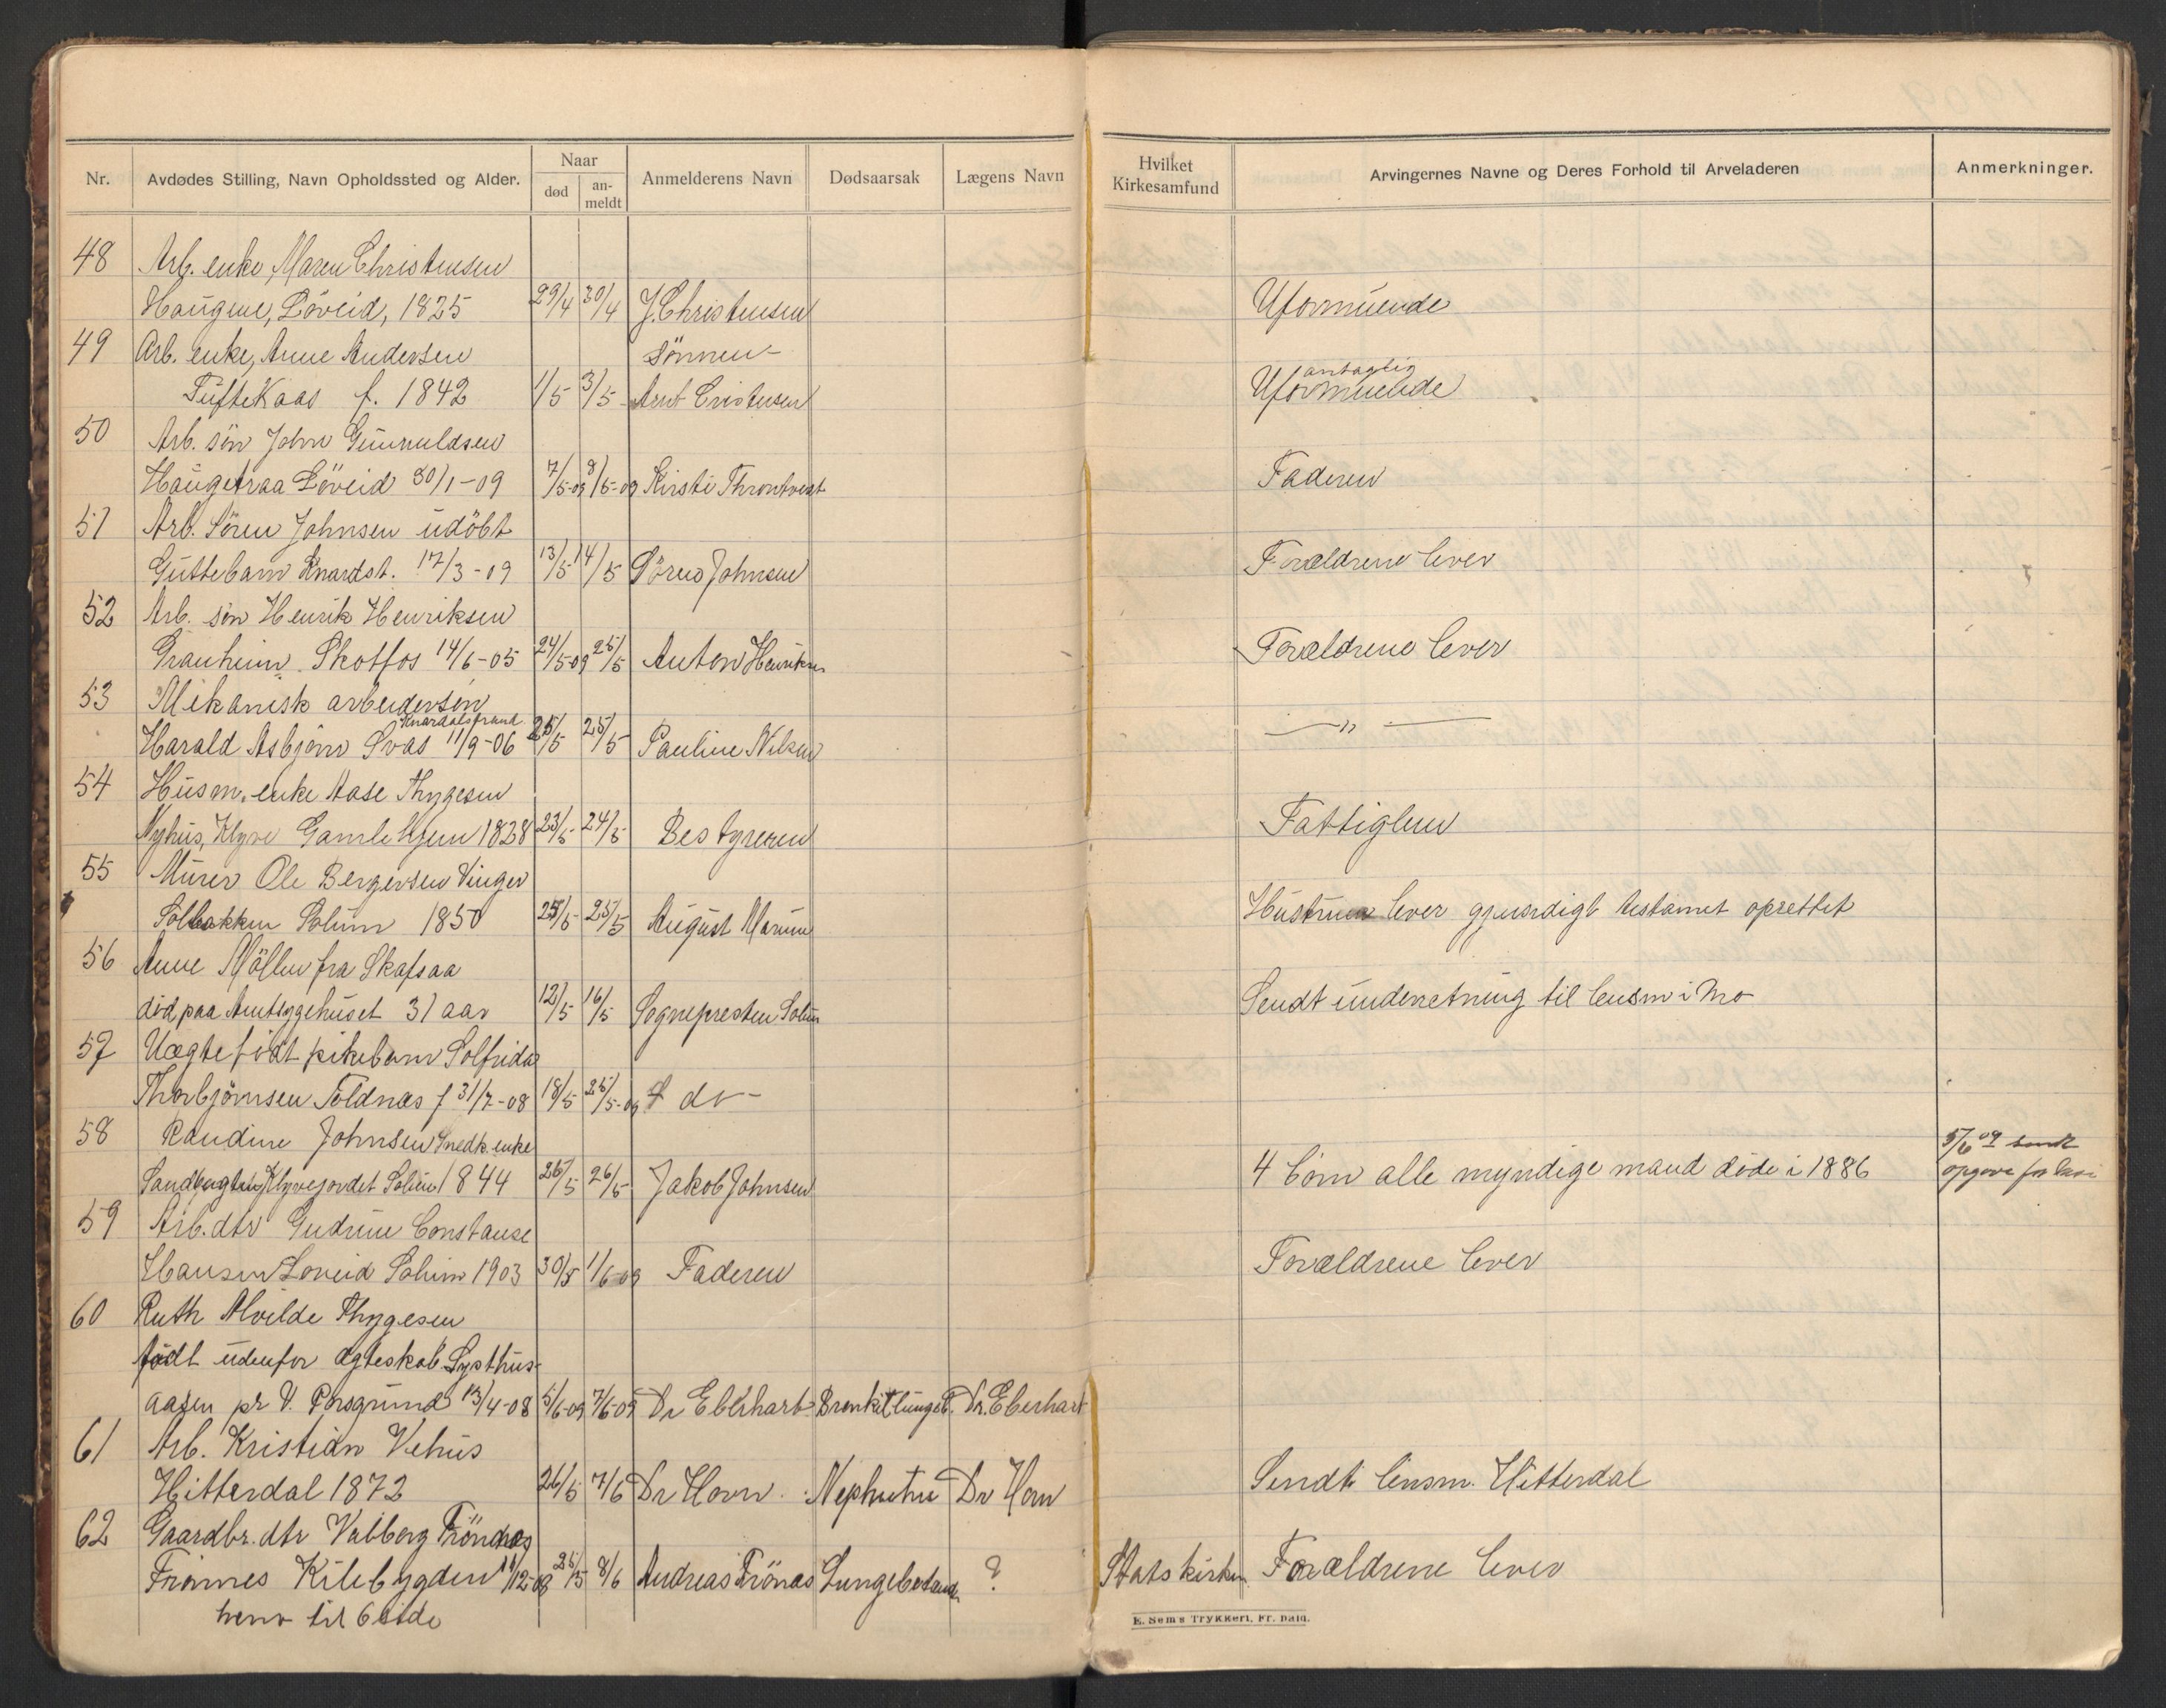 Nr. Avdødes Stilling, Navn Opholdssted og Alder. Naar død an-meldt Anmelderens Navn Dødsaarsak Lægens Navn Hvilket Kirkesamfund Arvingernes Navne og Deres Forhold til Arveladeren Anmerkninger.
48 Arb. enke, Maren Christensen
Haugene, Löveid, 1825 29/4 30/4 J. Christensen Uformuende
49 Arb. enke, Anne Andersen Sönnen antaglig
Tuftekaas f. 1842 1/5 3/5 Arnt Cristensen Uformuende
50 Arb. sön John Gunnuldsen
Haugetraa Löveid 30/1-09 7/5-09 8/5-09 Kirsti Throntveit Faderen
51 Arb. Sören Johnsen udöbt
Guttebarn Knardst. 17/3-09 13/5 14/5 Sören Johnsen Forældrene lever
52 Arb. sön Henrik Henriksen
Granheim Skotfos 14/6-05 24/5-09 25/5 Anton Henriksen Forældrene lever
53 Mekanisk arbeidersön
Knardalstrand
Harald Asbjörn Svas 11/9-06 25/5 25/5 Pauline Nilsen — " —
54 Husm. enke Aase Thygesen
Nyhus, Klyve Gamlehjem 1828 23/5 24/5 Bestyreren Fattiglem
55 Murer Ole Bergersen Vinger
Solbakken Solum 1850 25/5 25/5 August Marum Hustruen lever gjensidigt testamet oprettet
56 Anne Möllen fra Skafsaa
död paa Amtsygehuset 31 aar 12/5 16/5 Sognepresten Solum Sendt underretning til lensm i Mo
57 Uægtefödt pikebarn Solfrida
Thorbjörnsen Foldnæs f 31/7-08 18/5 25/5-09 do -
58 Randine Johnsen Snedk. enke 5/6 09 sendt
Sandbugten Klyvejordet Solum 1844 26/5 26/5 Jakob Johnsen 4 börn alle myndige mand döde i 1886 opgave
59 Arb. dtr Gudrun Constanse
Hansen Löveid Solum 1903 30/5 1/6-09 Faderen Forældrene lever
60 Ruth Alvilde Thygesen
födt udenfor ægteskab Lysthus-
aasen pr V. Porsgrund 13/4-08 5/6-09 7/6-09 Dr Eberhart Bronkit lungeb. Dr. Eberhart
61 Arb. Kristian Vehus
Hitterdal 1872 26/5 7/6 Dr Horn Dr Horn Sendt lensm. Hitterdal
62 Gaardbr. dtr Valborg Frönæs
Frönnes Kilebygden 11/12-08 25/5 8/6 Andreas Frönæs Lungebetænd. ? Statskirken Forældrene lever
henv til 6 side
E. Sem's Trykkeri, Fr.hald.